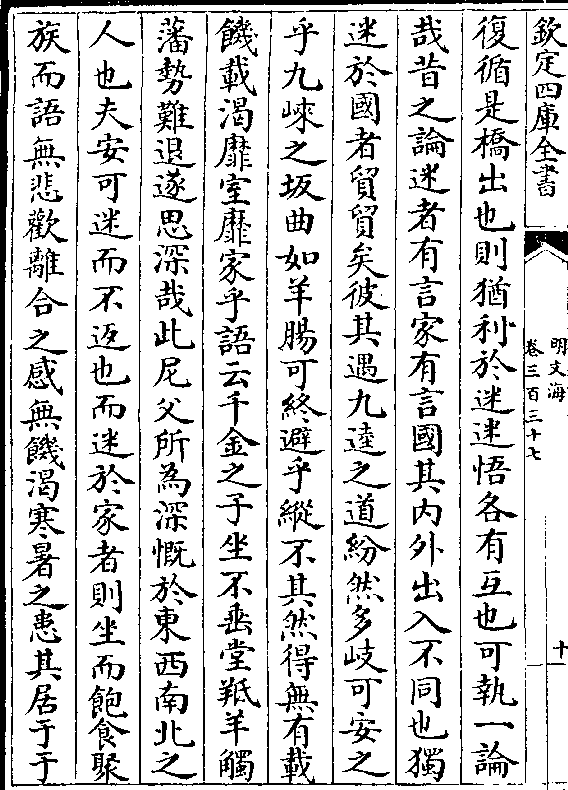 欽定四庫全書
明文海
卷三百三十七
十
復循是橋出也則猶利於迷迷悟各有互也可執一論
哉昔之論迷者有言家有言國其內外出入不同也獨
迷於國者貿貿矣彼其遇九逵之道紛然多岐可安之
乎九崍之坂曲如羊腸可終避乎縱不其然得無有載
饑載渴靡室靡家乎語云千金之子坐不垂堂羝羊觸
藩勢難退遂思深哉此尼父所為深慨於東西南北之
人也夫安可迷而不返也而迷於家者則坐而飽食聚
族而語無悲歡離合之感無饑渴寒暑之患其居于于